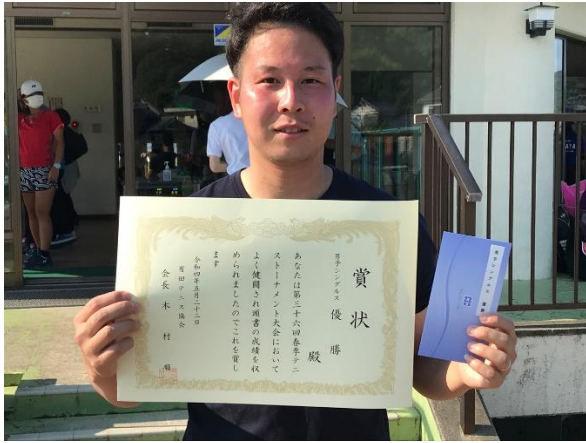 賞状
男子シングルス 優勝
殿
あなたは第三十六回春季テニ
ストーナメント大会において
よく健闘され頭書の成績を収
められましたのでこれを賞し
ます
令和四年五月二十二日
有田テニス協会
会長 木村
男子シングルス 優勝